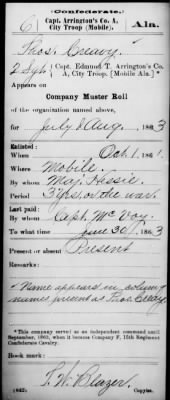 (Confederate.)
61 Capt. Arrington's Co. A, City Troop (Mobile). Ala.
Thos. Creavy.
2 Sgt, Capt. Edmund T. Arrington's Co. A, City Troop, (Mobile Ala.)*
Appears on
Company Muster Roll
of the organization named above,
for July & Aug, 1863
Enlisted:
When Oct. 1, 1861.
Where Mobile.
By whom Maj. Hessie.
Period 3 yrs. or the war.
Last paid:
By whom Capt. McVoy.
To what time June 30, 1863
Present or absent Present
Remarks:
Name appears in column
names present as Thos Creagy
*This company served as an independent command until
September, 1863, when it became Company F, 15th Regiment
Confederate Cavalry.
Book mark:
T. W. Blazer.
(642) Copyist.